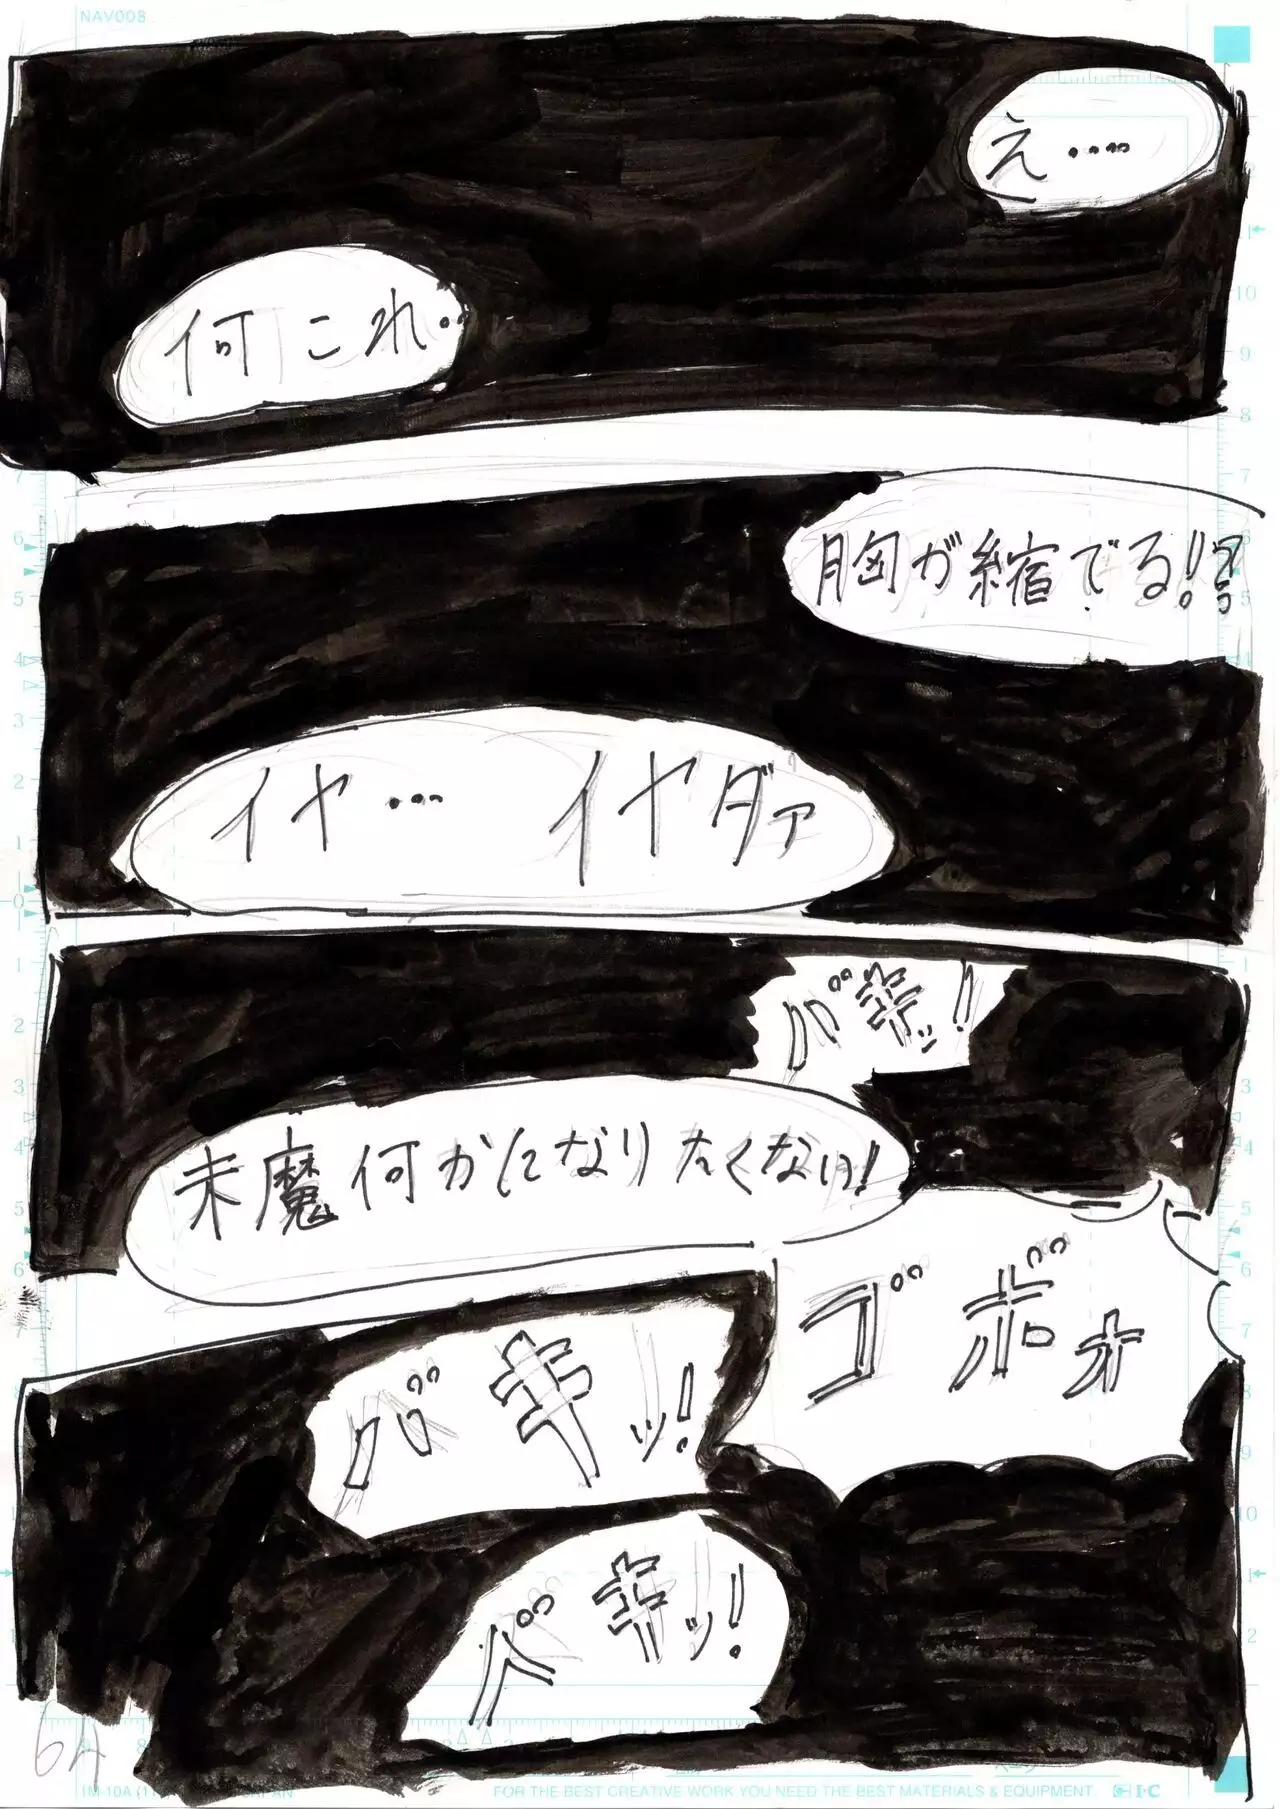 NAV008
え‥‥
何これ‥
胸が縮でる!?
イヤ… イヤダァ
バキッ!
未魔何かになりたくない!
ゴボォ
バキッ!
ベキッ!
64
FOR THE BEST CREATIVE WORK YOU NEED THE BEST MATERIALS & EQUIPMENT.
I·C